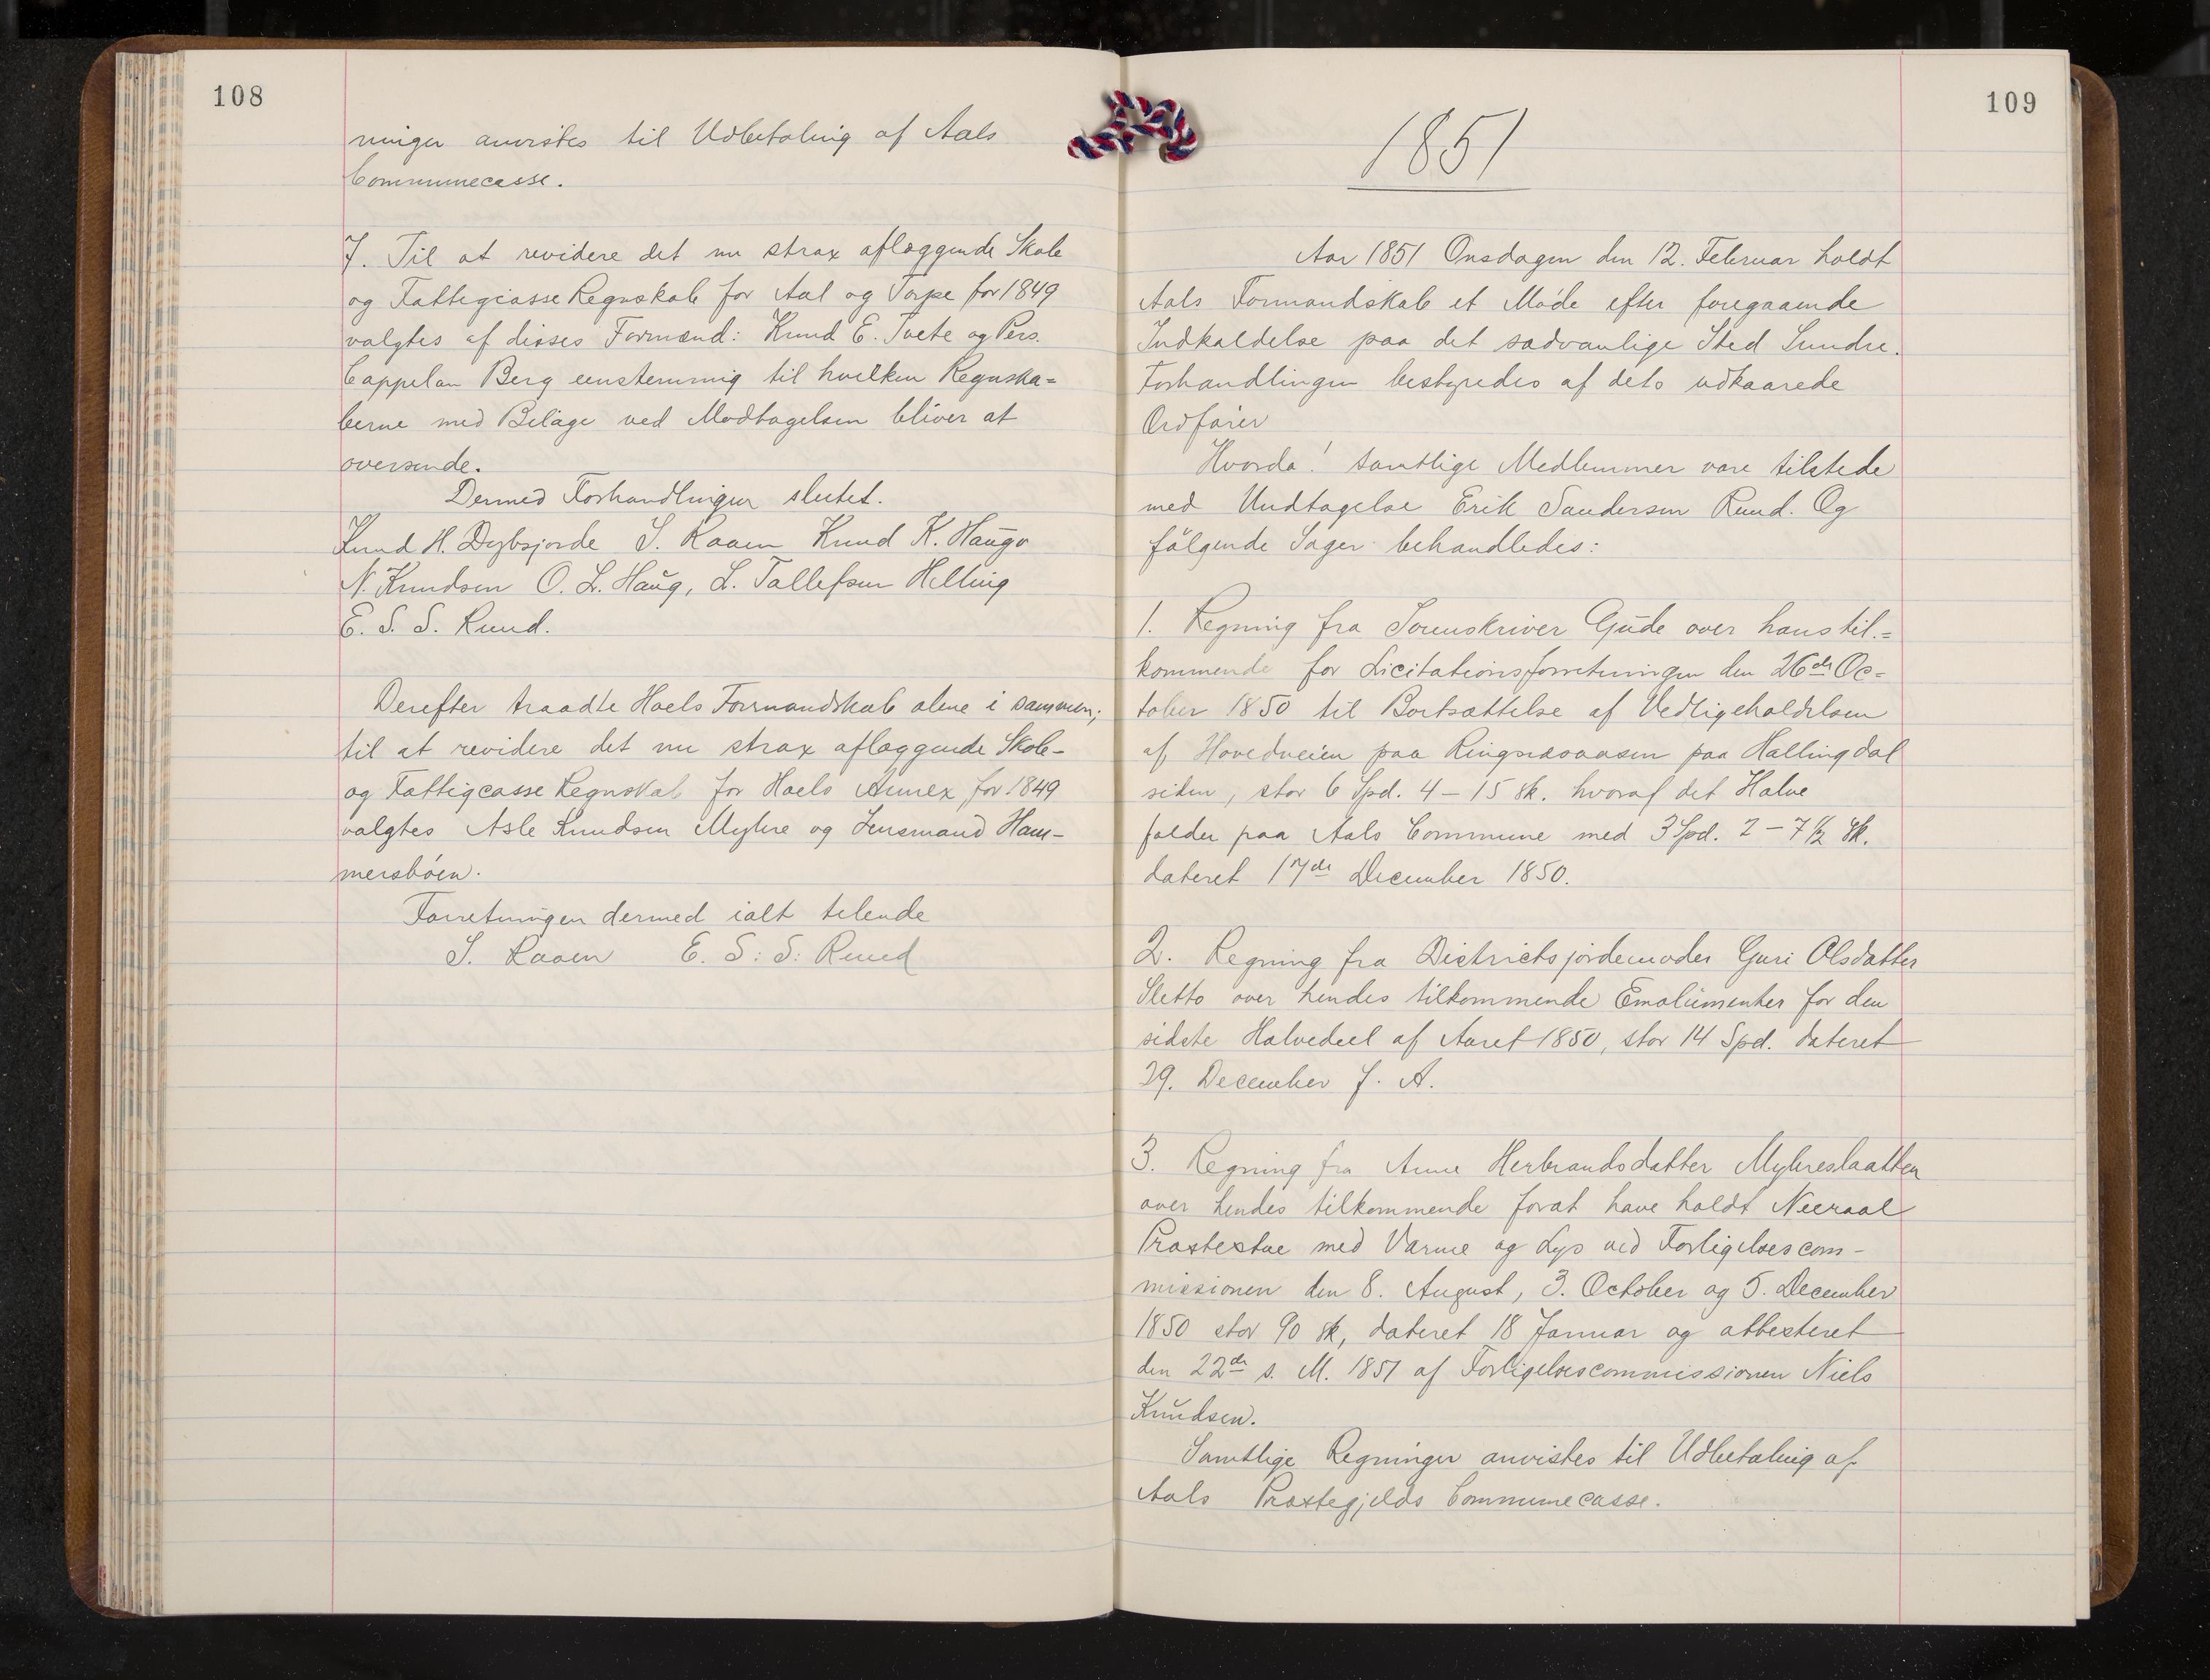 108
ninger anvistes til Udbetaling af Aals
Communecasse.
7. Til at revidere det nu strax aflæggende Skole
og Fattigcasse Regnskab for Aal og Torpe for 1849
valgtes af disses Formænd: Knud E. Tvete og Pers.
Cappelan Berg eenstemmig til hvilken Regnska=
berne med Bilage ved Modtagelsen bliver at
oversende.
Dermed Forhandlingen sluttet.
Knud H. Dybsjorde S. Raaen Knud K. Haugo
N. Knudsen O. L. Haug, L. Tollefsen Helling
E. S. S. Ruud.
Derefter traadte Hoels Formandskab alene i sammen;
til at revidere det nu strax aflæggende Skole-
og Fattigcasse Regnskab for Hoels Annex for 1849
valgtes Asle Knudsen Myhre og Lensmand Ham-
mersbøen.
Forretningen dermed ialt tilende
S. Raaen E. S: S: Ruud
109
1851
Aar 1851 Onsdagen den 12. Februar holdt
Aals Formandskab et Møde efter foregaaende
Indkaldelse paa det sædvanlige Sted Sundre.
Forhandlingen bestyredes af dets udkaarede
Ordfører
Hvorda! samtlige Medlemmer vare tilstede
med Undtagelse Erik Sandersen Ruud. Og
følgende Sager behandledes:
1. Regning fra Sorenskriver Gude over hans til.=
kommende for Licitationsforretningen den 26de Oc=
tober 1850 til Bortsættelse af Vedligeholdelsen
af Hovedveien paa Ringnesaasen paa Hallingdal
siden, stor 6 Spd. 4 – 15 sk. hvoraf det Halve
falder paa Aals Commune med 3 Spd. 2 – 7 1/2 sk.
dateret 17de December 1850.
2. Regning fra Districtsjordemoder Guri Olsdatter
Sletto over hendes tilkommende Emolumenter for den
sidste Halvedeel af Aaret 1850, stor 14 Spd. dateret
29. December f. A.
3. Regning fra Anne Herbrandsdatter Myhreslaatten
over hendes tilkommende forat have holdt Neeraal
Præstestue med Varme og Lys ved Forligelsescom-
missionen den 8. August, 3. October og 5. December
1850 stor 90 sk, dateret 18 Januar og attesteret
den 22de s. M. 1851 af Forligelsescommissionen Niels
Knudsen.
Samtlige Regninger anvistes til Udbetaling af
Aals Præstegjelds Communecasse.